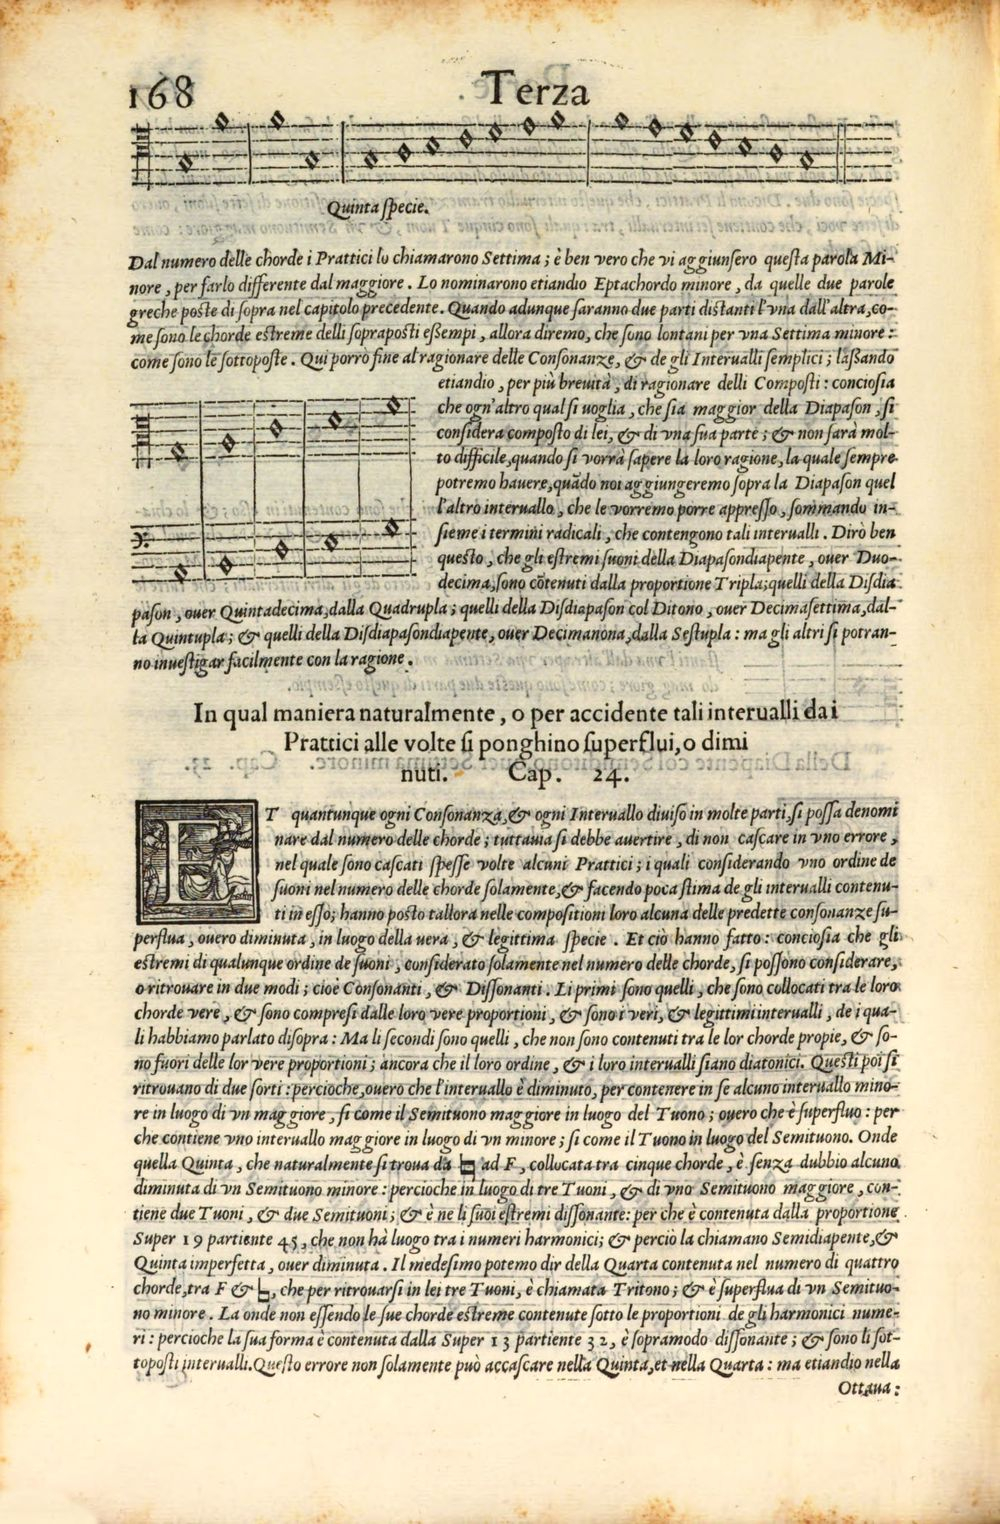 168
Terza
Quinta ſpecie.
Dal numero delle chorde i Prattici lo chiamarono Settima; è ben vero che vi aggiunſero queſta parola Mi-
nore, per farlo differente dal maggiore. Lo nominarono etiandio Eptachordo minore, da quelle due parole
greche poſte di ſopra nel capitolo precedente. Quando adunque ſaranno due parti diſtanti l'vna dall'altra, co-
me ſono le chorde eſtreme delli ſoprapoſti eſsempi, allora diremo, che ſono lontani per vna Settima minore:
come ſono le ſottopoſte. Qui porrò fine al ragionare delle Conſonanze, & de gli Interualli ſemplici; laſsando
etiandio, per più breuità, di ragionare delli Compoſti: concioſia
che ogn'altro qual ſi voglia, che ſia maggior della Diapaſon, ſi
conſidera compoſto di lei, & di vna ſua parte; & non ſarà mol-
to difficile, quando ſi vorrà ſapere la loro ragione, la quale ſempre
potremo hauere, quãdo noi aggiungeremo ſopra la Diapaſon quel
l'altro interuallo, che le vorremo porre appreſſo, ſommando in-
ſieme i termini radicali, che contengono tali interualli. Dirò ben
queſto, che gli eſtremi ſuoni della Diapaſondiapente, ouer Duo-
decima, ſono cõtenuti dalla proportione Tripla; quelli della Diſdia
paſon, ouer Quintadecima, dalla Quadrupla; quelli della Diſdiapaſon col Ditono, ouer Decimaſettima, dal-
la Quintupla; & quelli della Diſdiapaſondiapente, ouer Decimanona, dalla Seſtupla: ma gli altri ſi potran-
no inueſtigar facilmente con la ragione.
In qual maniera naturalmente, o per accidente tali interualli da i
Prattici alle volte ſi ponghino ſuperflui, o dimi
nuti. Cap. 24.
ET quantunque ogni Conſonanza, & ogni Interuallo diuiſo in molte parti, ſi poſſa denomi
nare dal numero delle chorde; tuttauia ſi debbe auertire, di non caſcare in vno errore,
nel quale ſono caſcati ſpeſſe volte alcuni Prattici; i quali conſiderando vno ordine de
ſuoni nel numero delle chorde ſolamente, & facendo poca ſtima de gli interualli contenu-
ti in eſſo; hanno poſto tallora nelle compoſitioni loro alcuna delle predette conſonanze ſu-
perflua, ouero diminuta, in luogo della uera, & legittima ſpecie. Et ciò hanno fatto: concioſia che gli
eſtremi di qualunque ordine de ſuoni, conſiderato ſolamente nel numero delle chorde, ſi poſſono conſiderare,
o ritrouare in due modi; cioè Conſonanti, & Diſſonanti. Li primi ſono quelli, che ſono collocati tra le loro
chorde vere, & ſono compreſi dalle loro vere proportioni, & ſono i veri, & legittimi interualli, de i qua-
li habbiamo parlato diſopra: Ma li ſecondi ſono quelli, che non ſono contenuti tra le lor chorde propie, & ſo-
no fuori delle lor vere proportioni; ancora che il loro ordine, & i loro interualli ſiano diatonici. Queſti poi ſi
ritrouano di due ſorti: percioche, ouero che l'interuallo è diminuto, per contenere in ſe alcuno interuallo mino-
re in luogo di vn maggiore, ſi come il Semituono maggiore in luogo del Tuono; ouero che è ſuperfluo: per
che contiene vno interuallo maggiore in luogo di vn minore; ſi come il Tuono in luogo del Semituono. Onde
quella Quinta, che naturalmente ſi troua da ♮ ad F, collocata tra cinque chorde, è ſenza dubbio alcuno
diminuta di vn Semituono minore: percioche in luogo di tre Tuoni, & di vno Semituono maggiore, con-
tiene due Tuoni, & due Semituoni; & è ne li ſuoi eſtremi diſſonante: per che è contenuta dalla proportione
Super 19 partiente 45, che non hà luogo tra i numeri harmonici; & perciò la chiamano Semidiapente, &
Quinta imperfetta, ouer diminuta. Il medeſimo potemo dir della Quarta contenuta nel numero di quattro
chorde, tra F & ♮, che per ritrouarſi in lei tre Tuoni, è chiamata Tritono; & è ſuperflua di vn Semituo-
no minore. La onde non eſſendo le ſue chorde eſtreme contenute ſotto le proportioni de gli harmonici nume-
ri: percioche la ſua forma è contenuta dalla Super 13 partiente 32, è ſopramodo diſſonante; & ſono li ſot-
topoſti interualli. Queſto errore non ſolamente può accaſcare nella Quinta, et nella Quarta: ma etiandio nella
Ottaua: